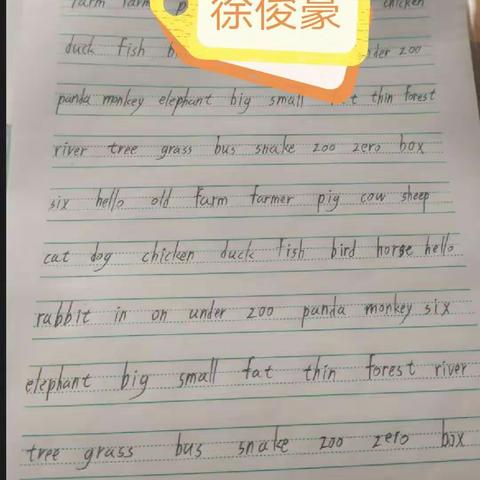 徐俊豪
farm farm chicken
duck fish zoo
panda monkey elephant big small thin forest
river tree grass bus snake zoo zero box
six hello old farm farmer pig cow sheep
cat dog chicken duck fish bird horse hello
rabbit in on under zoo panda monkey six
elephant big small fat thin forest river
tree grass bus snake zoo zero box